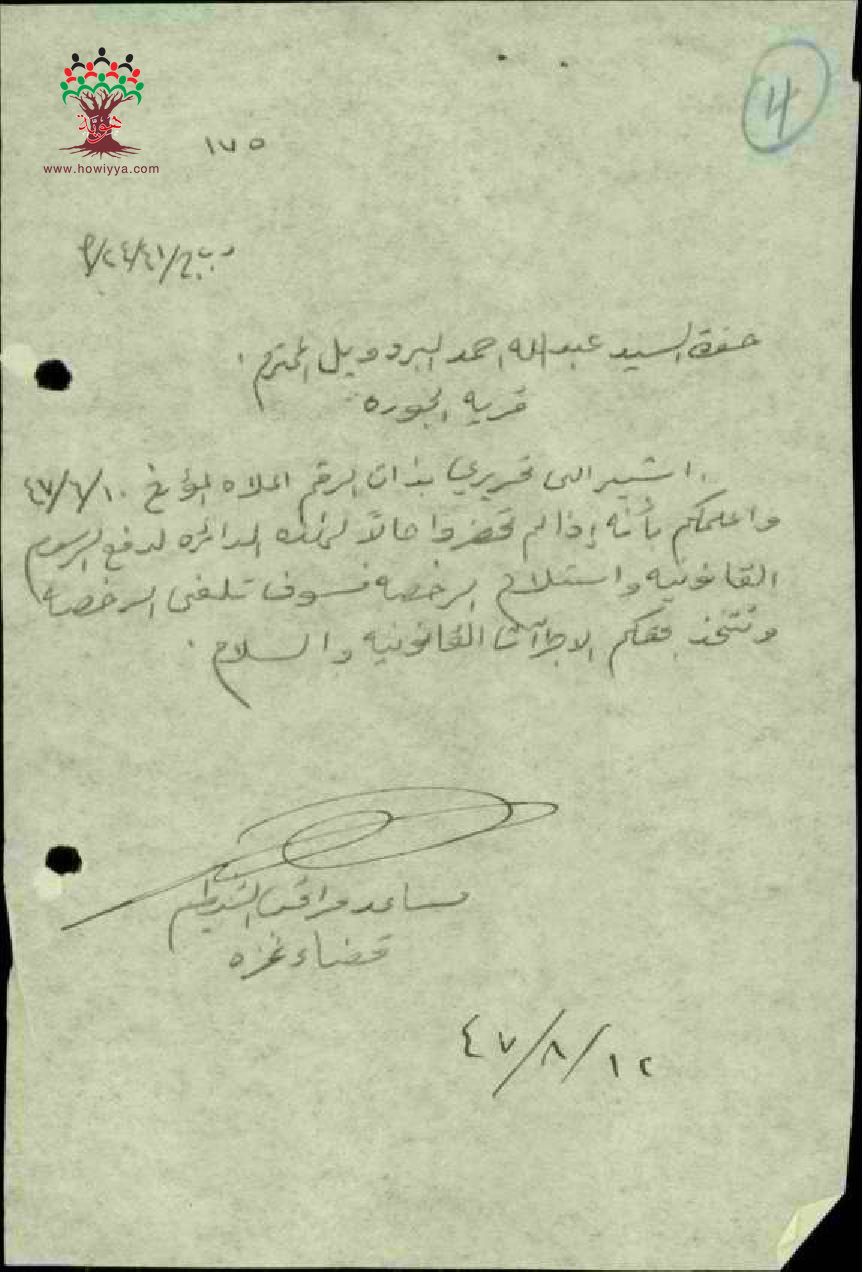 هوية
www.howiyya.com
4
١٧٥
٩/٢٤/٤١/
حضرة السيد عبدالله احمد البردويل المحترم .
قرية الجوره
اشير الى تحريري بذات الرقم اعلاه المؤرخ ٤٧/٦/١٠
واعلمكم بأنه إذا لم تحضروا حالاً لهذه الدائرة لدفع الرسوم
القانونيه واستلام الرخصه فسوف تلغى الرخصه
وتتخذ بحقكم الاجراآت القانونيه والسلام .
مساعد مراقب التنظيم
قضاء غزه
٤٧/٨/١٢